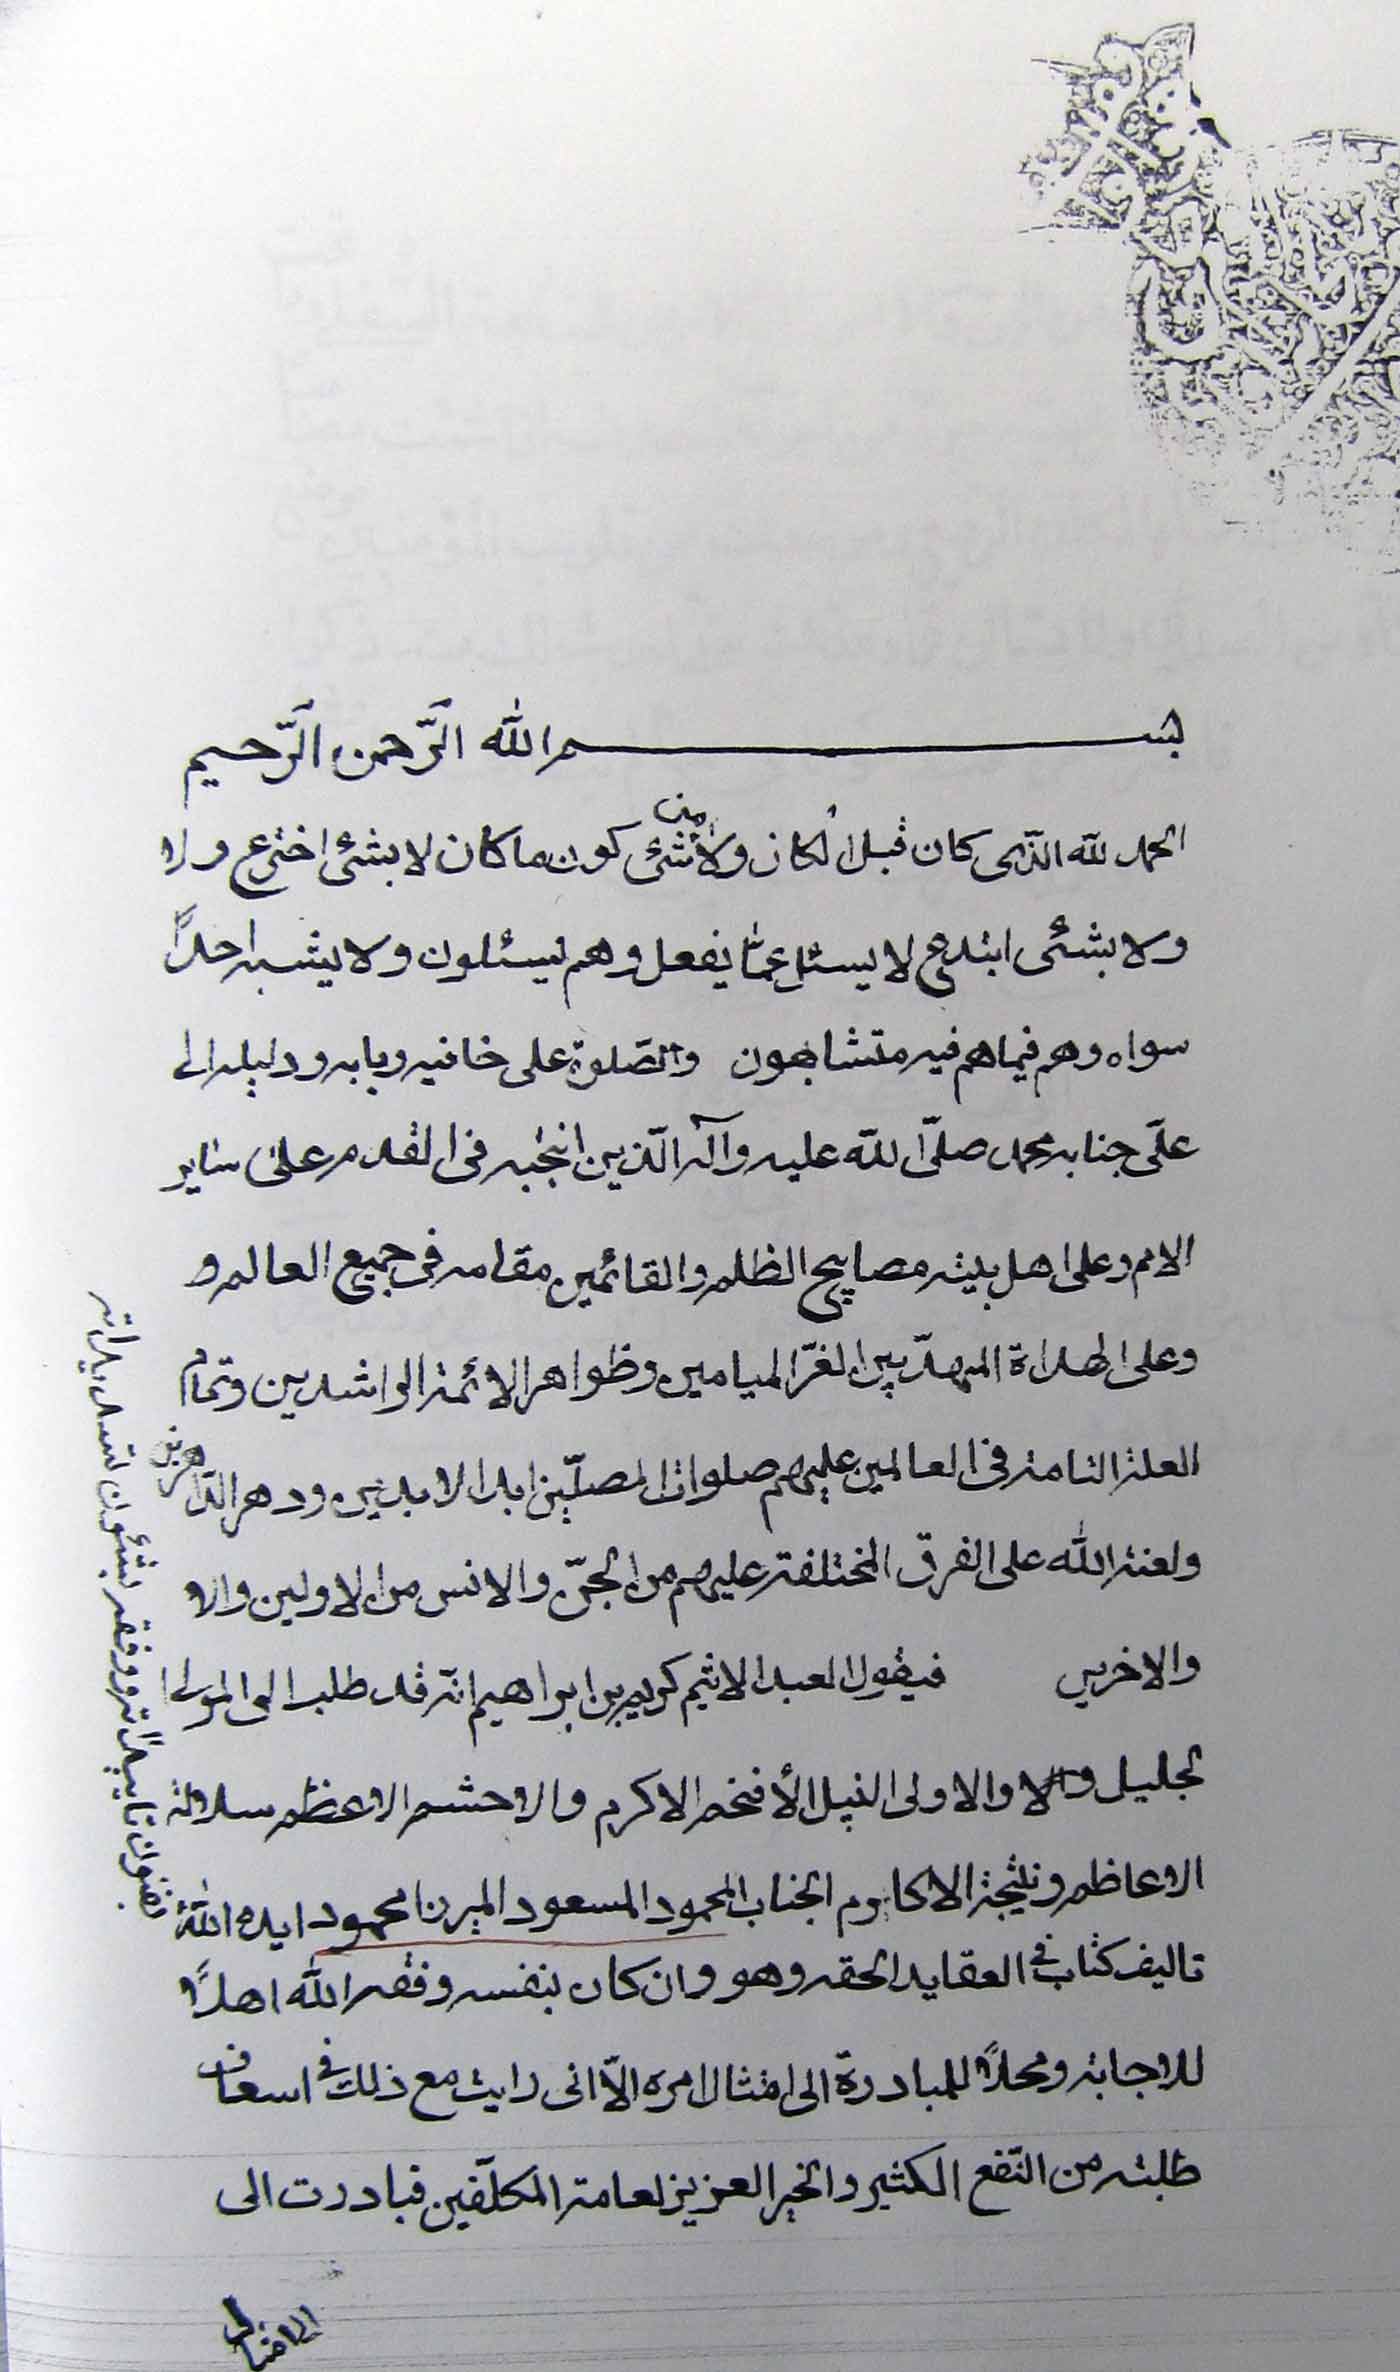 بسم الله الرَّحمن الرَّحيم
الحمد لله الذی كان قبل الكان ولا من شئ كون ما كان لا بشئ اخترع ولا
ولا بشئ ابتدع لا يسئل عمّا يفعل وهم يسئلون ولا يشبه احداً
سواه وهم فيما هم فيه متشابهون والصّلوة على خانيه وبابه ودليله الى
علّى جنابه محمد صلّى الله عليه وآله الّذين انتجبه فى القدم على ساير
الامم وعلى اهل بيته مصابيح الظلم والقائمين مقامه فى جميع العالم و
وعلى الهداة المهديّين الغرّ الميامين وظواهر الائمة الراشدين وتمام
العلة التامة فى العالمين عليهم صلوات المصلّين ابد الابدين ودهر الدّاهرين
ولعنة الله على الفرق المختلفة عليهم من الجنّ والانس من الاولين والا
والاخرين فيقول العبد الاثيم كريم بن ابراهيم انّه قد طلب الى المولى ا
لجليل والاولى النبيل الأفخم الاكرم والاحشم الاعظم سلالة
الاعاظم ونتيجة الاكارم الجناب المحمود المسعود الميرزا محمود ايده الله
بتاييداته ووفقه لشئون تسديداته
تاليف كتاب فى العقايد الحقه وهو وان كان بنفسه وفقه الله اهلاً
للاجابة ومحلاً للمبادرة الى امتثال امره الّا انى رايت مع ذلك فى اسعاف
طلبته من النّفع الكثير والخير العزيز لعامة المكلّفين فبادرت الى
الامتثال